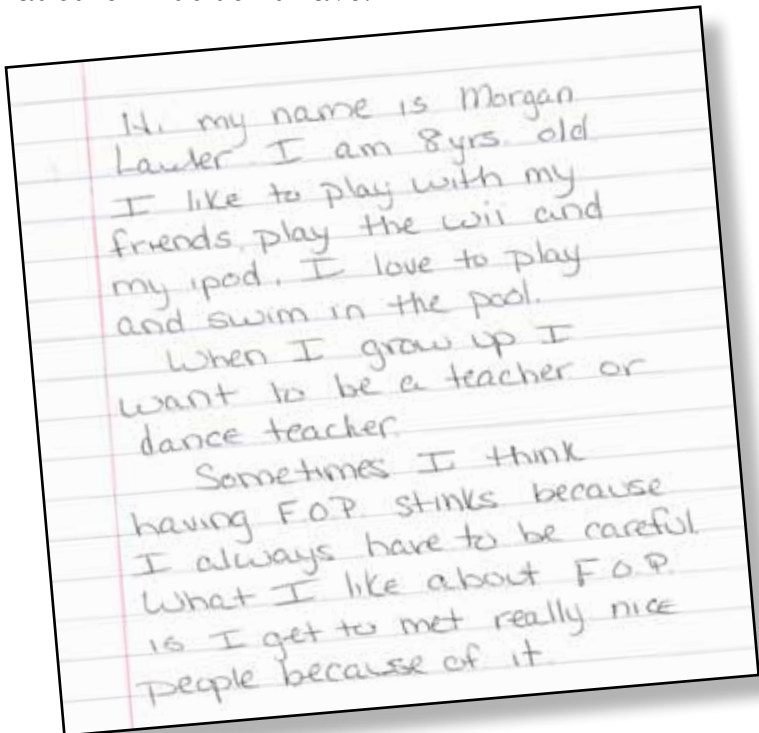 Hi. my name is Morgan
Lawler I am 8yrs. old
I like to play with my
friends, play the wii and
my ipod. I love to play
and swim in the pool.
When I grow up I
want to be a teacher or
dance teacher.
Sometimes I think
having F.O.P. stinks because
I always have to be careful.
What I like about F.O.P.
is I get to met really nice
people because of it.